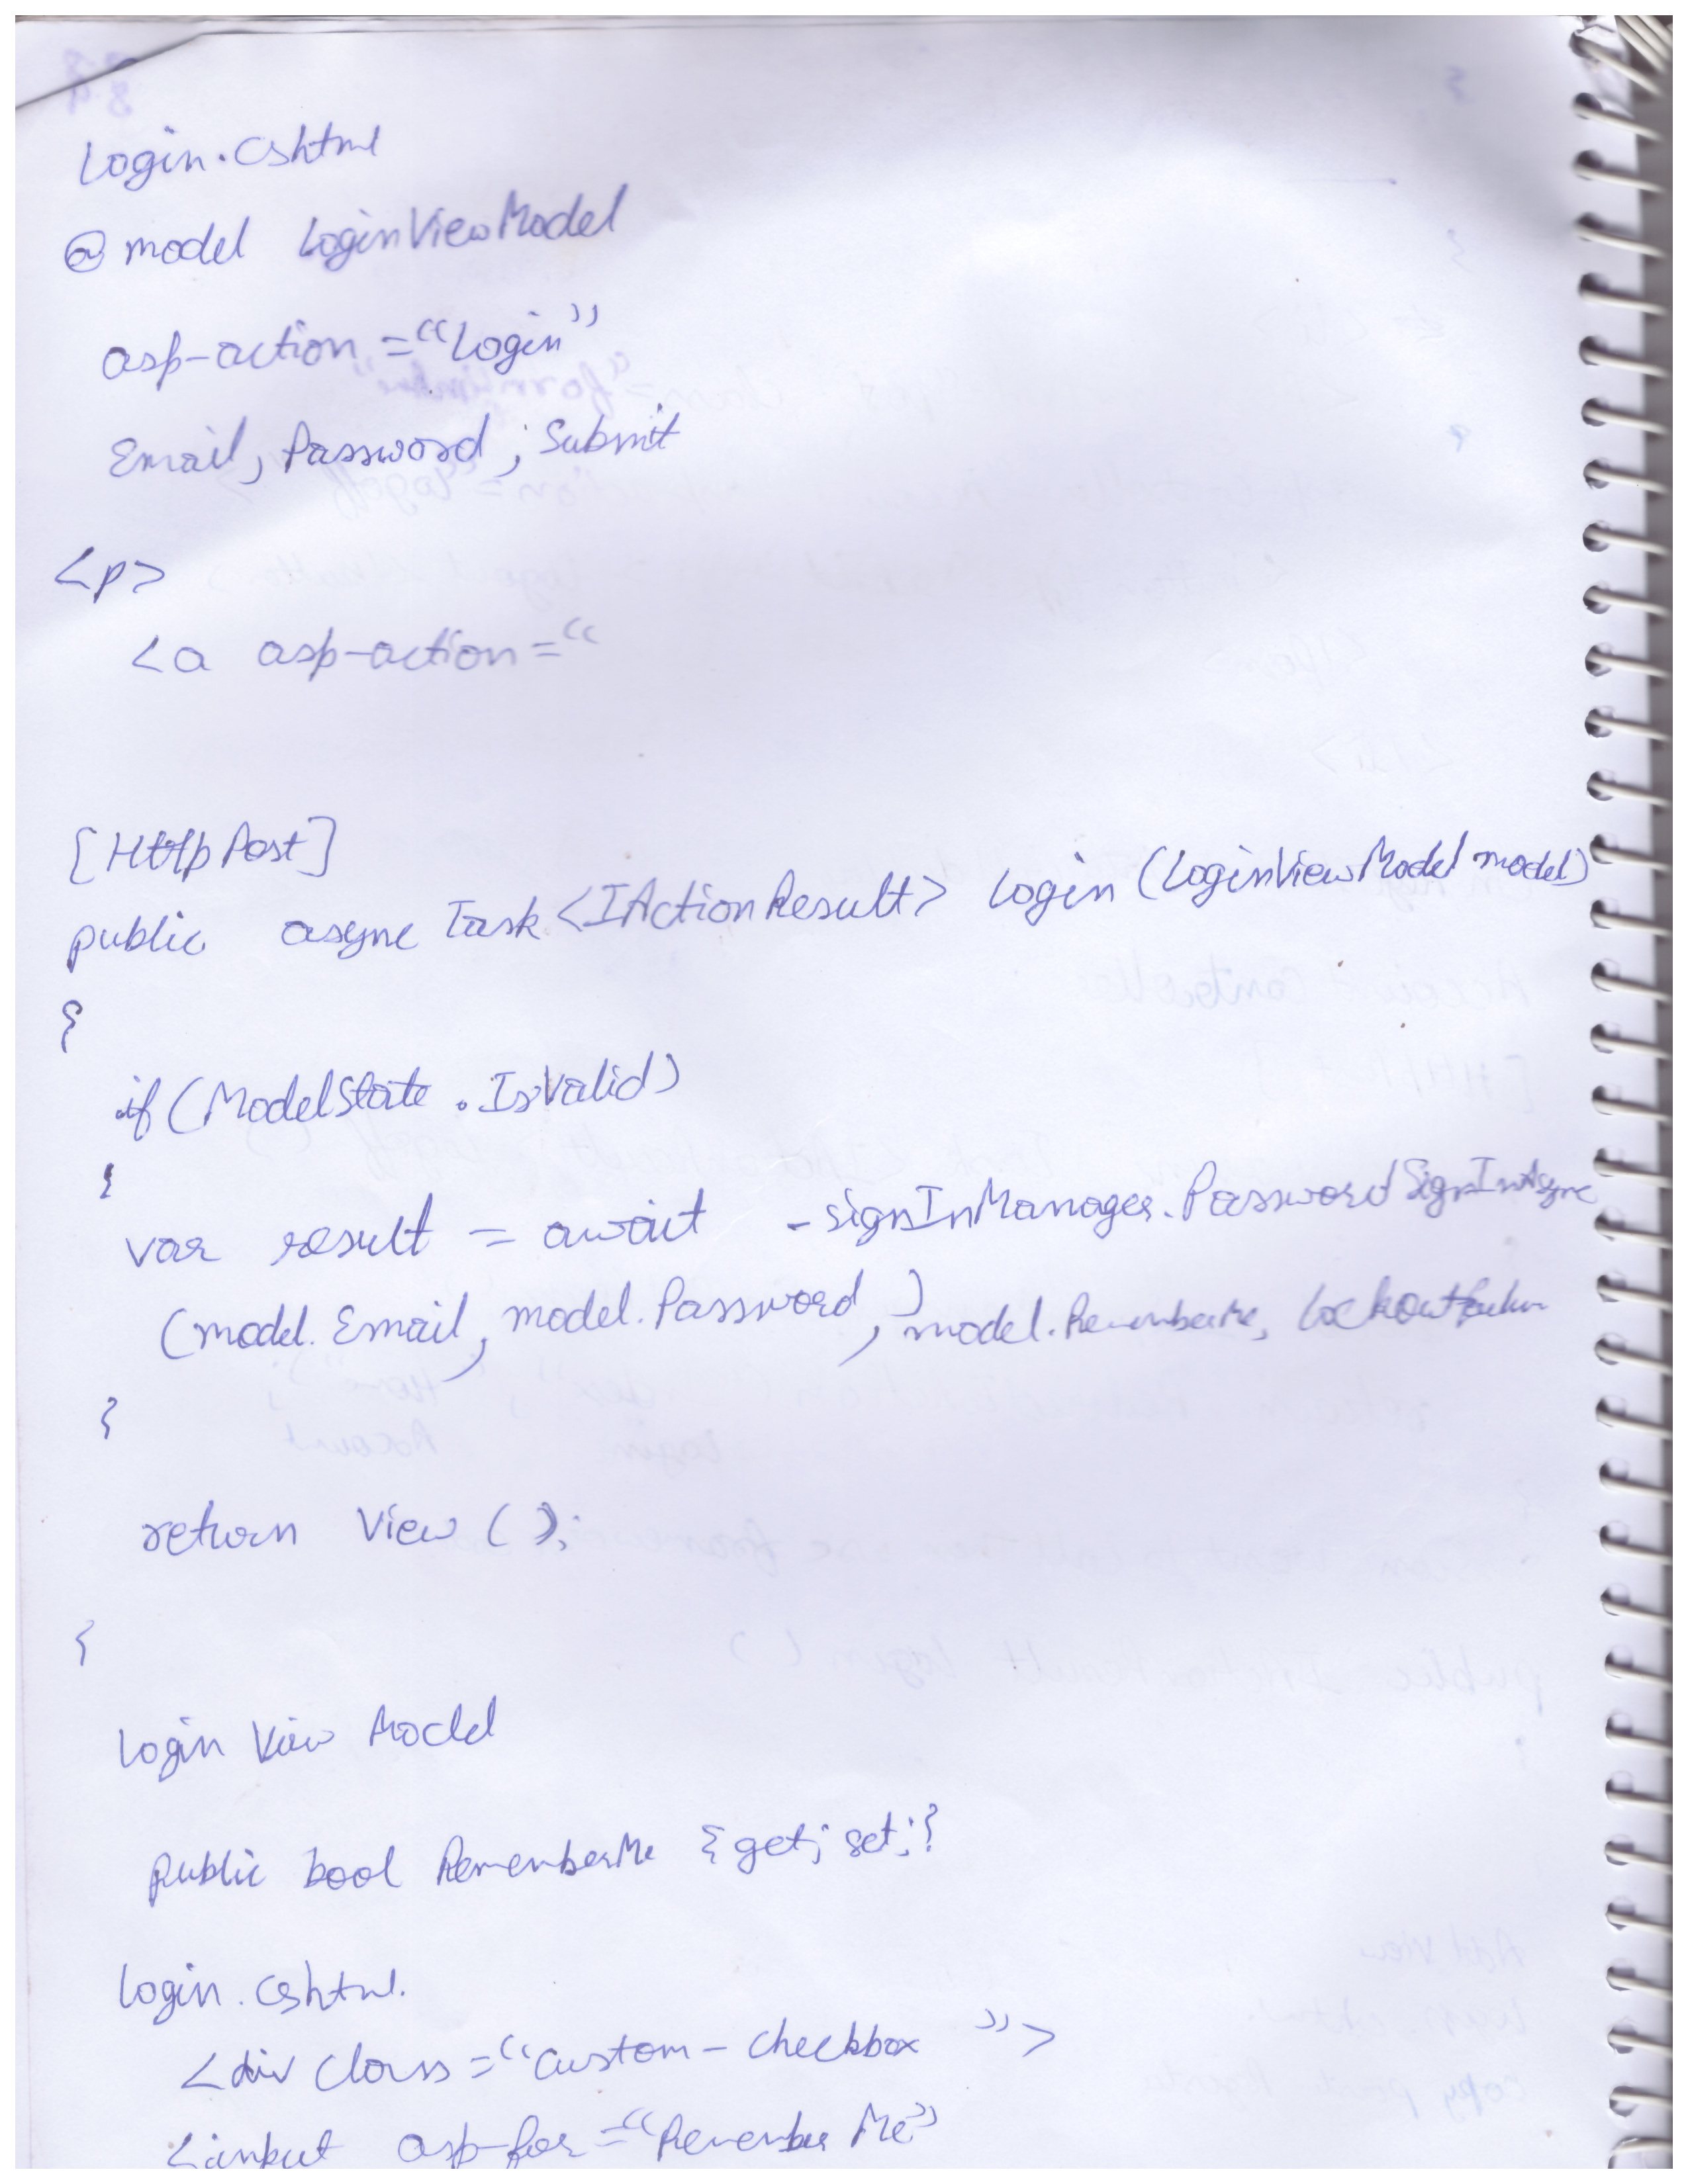 Login.cshtml
@ model LoginViewModel
asp-action = "Login"
Email, Password ; Submit
<p>
<a asp-action = "
[HttpPost]
public async Task <IActionResult> Login (LoginViewModel model)
{
if (ModelState . IsValid)
{
var result = await _signInManager.PasswordSignInAsync
(model.Email, model.Password, ) model.RememberMe,
}
return View ( );
}
Login View Model
public bool RememberMe { get; set; }
Login.cshtml.
<div class = "custom-checkbox ">
<input asp-for = "Remember Me"